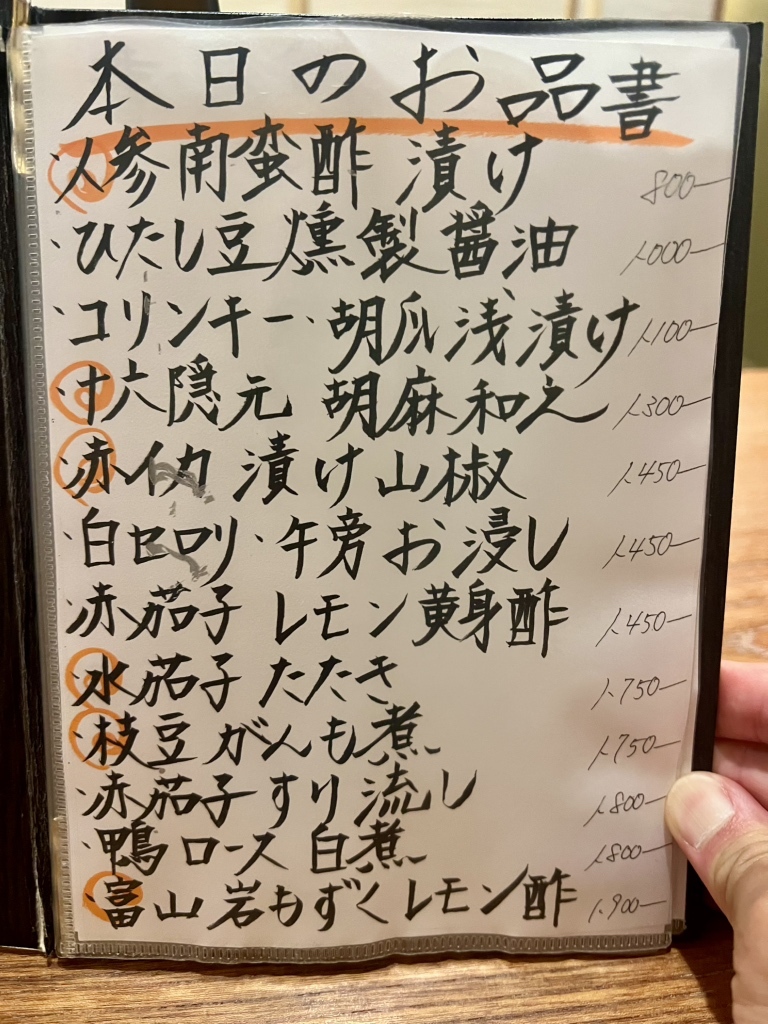 本日のお品書
・人参南蛮酢漬け 800-
・ひたし豆燻製醤油 1,000-
・コリンキー・胡瓜浅漬け 1,100-
・十六隠元 胡麻和え 1,300-
・赤イカ 漬け山椒 1,450-
・白セロリ・午旁お浸し 1,450-
・赤茄子 レモン黄身酢 1,450-
・水茄子 たたき 1,750-
・枝豆がんも煮 1,750-
・赤茄子すり流し 1,800-
・鴨ロース 白煮 1,800-
・富山岩もずくレモン酢 1,900-